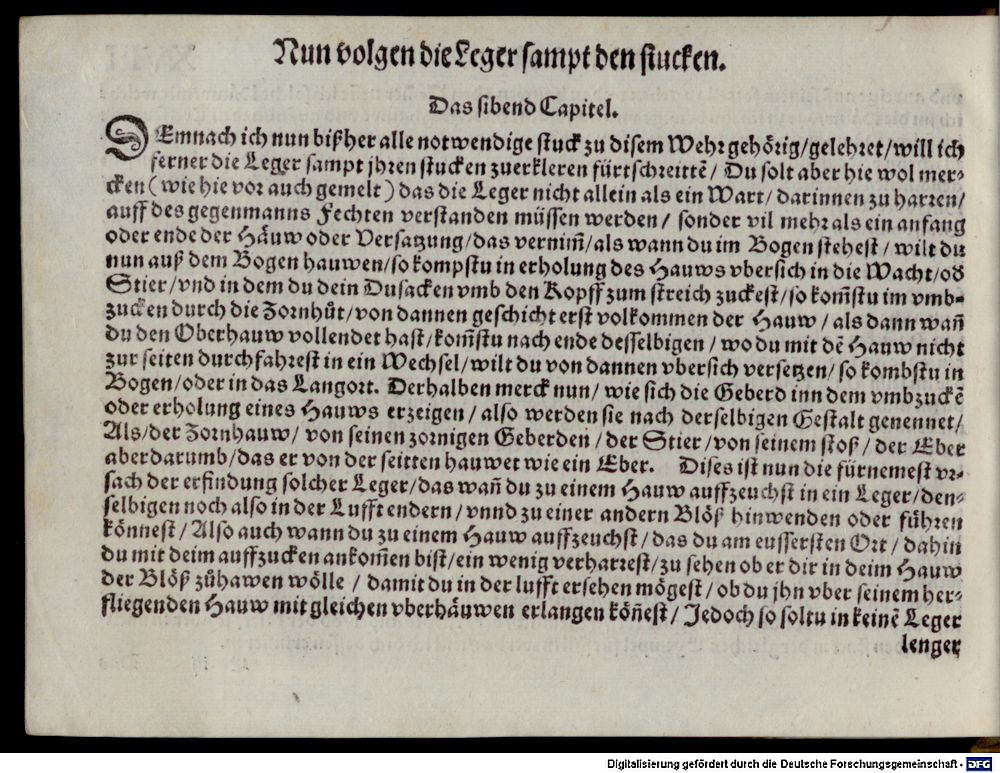 Nun volgen die Leger sampt den stucken.
Das sibend Capitel.
DEmnach ich nun bißher alle notwendige stuck zu disem Wehr gehörig/gelehret/will ich
ferner die Leger sampt jhren stucken zuerkleren fürtschreittē/ Du solt aber hie wol mer-
cken (wie hie vor auch gemelt) das die Leger nicht allein als ein Wart/ darinnen zu harren/
auff des gegenmanns Fechten verstanden müssen werden/ sonder vil mehr als ein anfang
oder ende der Häuw oder Versatzung/das vernim̄/als wann du im Bogen stehest/ wilt du
nun auß dem Bogen hauwen/so kompstu in erholung des Hauws vbersich in die Wacht/od
Stier/vnd in dem du dein Dusacken vmb den Kopff zum streich zuckest/so kom̄stu im vmb-
zucken durch die Zornhůt/von dannen geschicht erst volkommen der Hauw/ als dann wan̄
du den Oberhauw vollendet hast/kom̄stu nach ende desselbigen/ wo du mit dē Hauw nicht
zur seiten durchfahrest in ein Wechsel/wilt du von dannen vbersich versetzen/ so kombstu in
Bogen/oder in das Langort. Derhalben merck nun/ wie sich die Geberd inn dem vmbzuckē
oder erholung eines Hauws erzeigen/ also werden sie nach derselbigen Gestalt genennet/
Als/der Zornhauw/ von seinen zornigen Geberden/ der Stier/von seinem stoß/ der Eber
aber darumb/das er von der seitten hauwet wie ein Eber. Dises ist nun die fürnemest vr-
sach der erfindung solcher Leger/das wan̄ du zu einem Hauw auffzeuchst in ein Leger/den-
selbigen noch also in der Lufft endern/ vnnd zu einer andern Blöß hinwenden oder führen
könnest/ Also auch wann du zu einem Hauw auffzeuchst/ das du am eussersten Ort/ dahin
du mit deim auffzucken ankom̄en bist/ein wenig verharrest/zu sehen ob er dir in deim Hauw
der Blöß zůhawen wölle/ damit du in der lufft ersehen mögest/ ob du jhn vber seinem her-
fliegenden Hauw mit gleichen vberhäuwen erlangen kön̄est/ Jedoch so soltu in keinē Leger
lenger
Digitalisierung gefördert durch die Deutsche Forschungsgemeinschaft - DFG